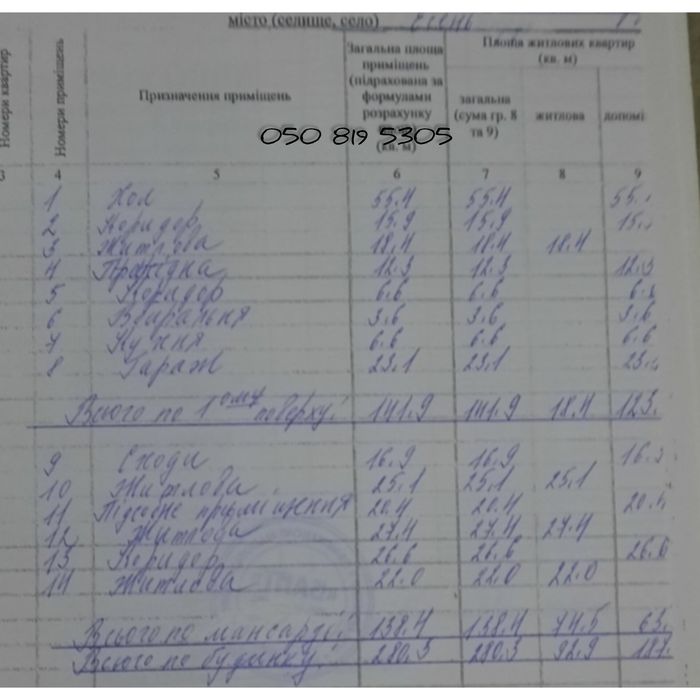 місто (селище, село)
Номери квартир
Номери приміщень
Призначення приміщень
Загальна площа приміщень (підрахована за формулами розрахунку
(кв. м)
Площа житлових квартир (кв. м)
загальна (сума гр. 8 та 9)
житлова
допомі
050 819 5305
3 4 5 6 7 8 9
1 Хол 55.4 55.4 55.
2 Коридор 15.9 15.9 15.
3 Житлова 18.4 18.4 18.4
4 12.3 12.3 12.3
5 Коридор 6.6 6.6 6.6
6 Вбиральня 3.6 3.6 3.6
7 Кухня 6.6 6.6 6.6
8 Гараж 23.1 23.1 23.
Всього по 1ому поверху: 141.9 141.9 18.4 123.
9 Сходи 16.9 16.9 16.
10 Житлова 25.1 25.1 25.1
11 Підсобне приміщення 20.4 20.4 20.4
12 Житлова 27.4 27.4 27.4
13 Коридор 26.6 26.6 26.6
14 Житлова 22.0 22.0 22.0
Всього по мансарді: 138.4 138.4 74.5 63.
Всього по будинку: 280.3 280.3 92.9 187.